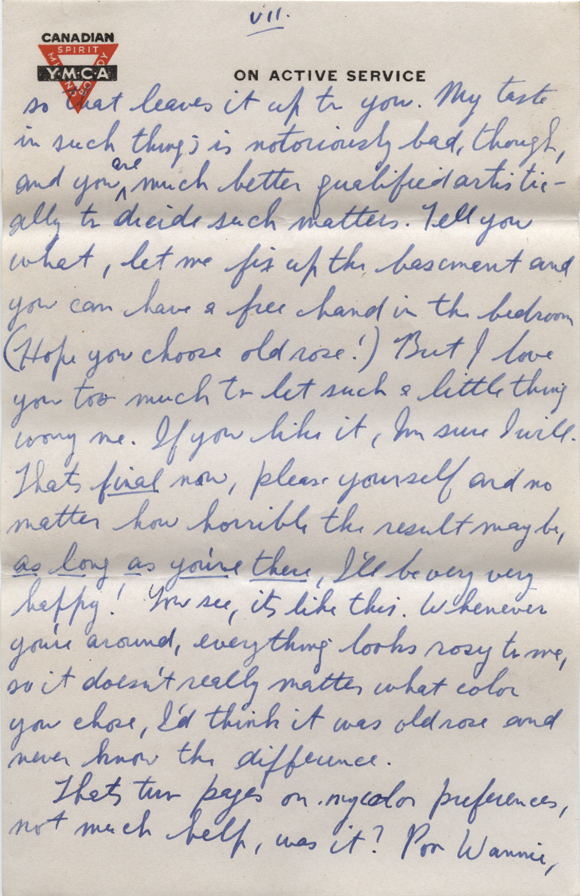 vii.
CANADIAN
SPIRIT
MIND
BODY
Y·M·C·A
ON ACTIVE SERVICE
so that leaves it up to you. My taste
in such things is notoriously bad, though,
and you are much better qualified artistic-
ally to decide such matters. Tell you
what, let me fix up the basement and
you can have a free hand in the bedroom
(Hope you choose old rose!) But I love
you too much to let such a little thing
worry me. If you like it, I'm sure I will.
That's final now, please yourself and no
matter how horrible the result may be,
as long as you're there, I'll be very very
happy! You see, it's like this. Whenever
you're around, everything looks rosy to me,
so it doesn't really matter what color
you chose, I'd think it was old rose and
never know the difference.
That's two pages on my color preferences,
not much help, was it? Poor Wannie,